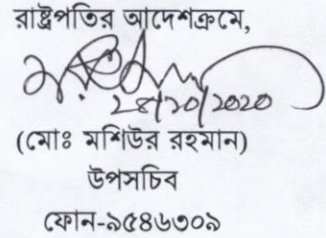 রাষ্ট্রপতির আদেশক্রমে,
২৪/১০/২০২০
(মোঃ মশিউর রহমান)
উপসচিব
ফোন-৯৫৪৬৩০৯